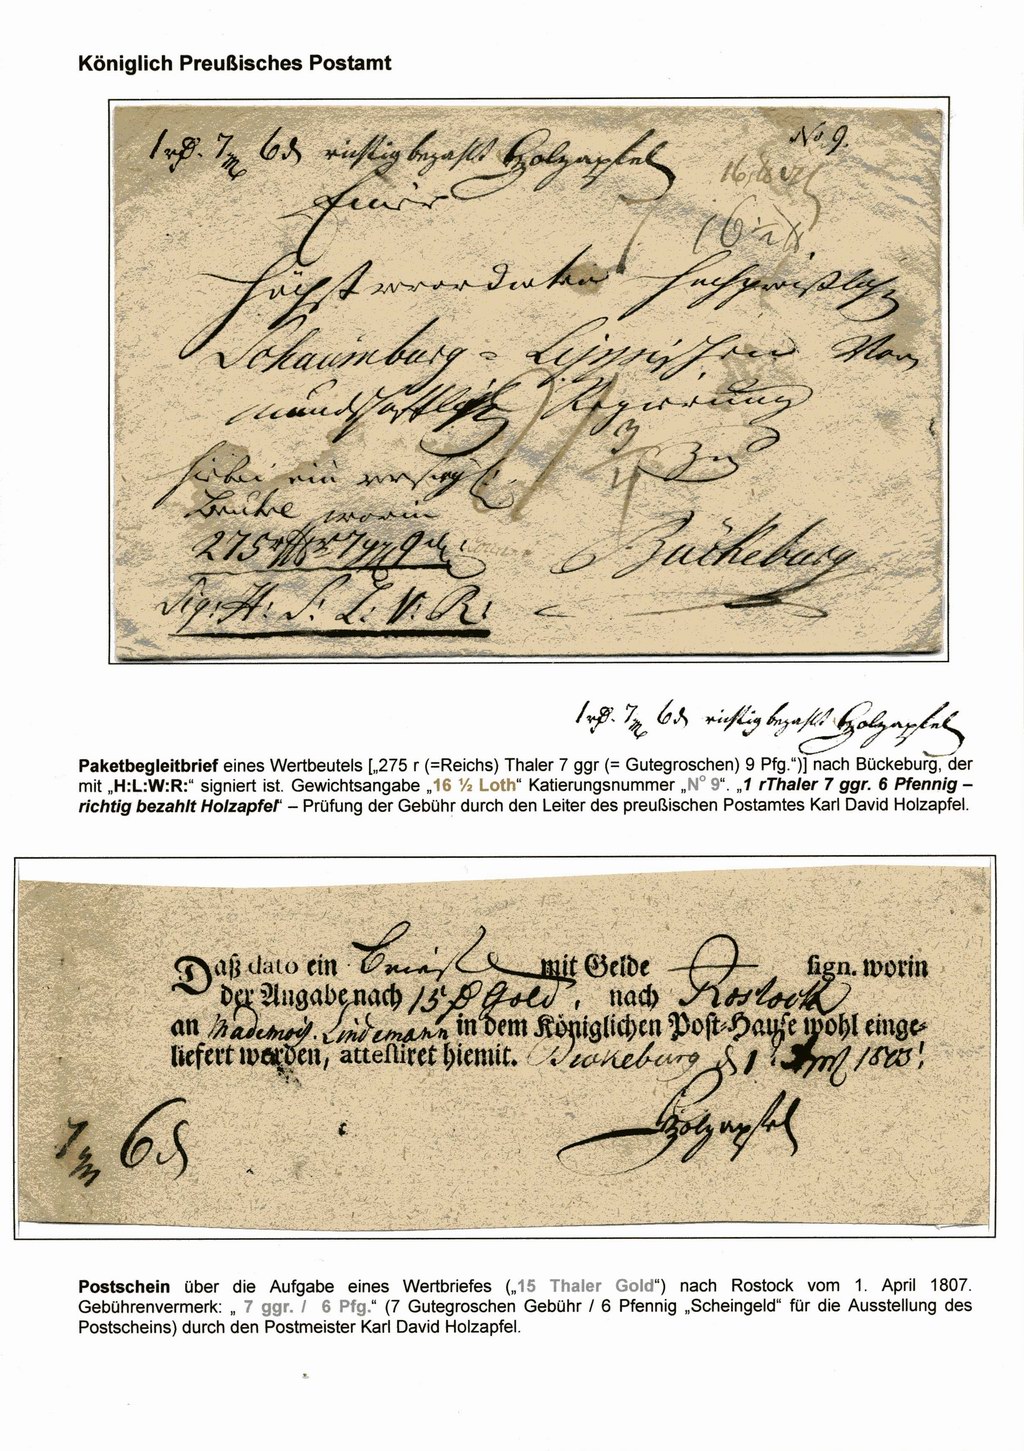 Königlich Preußisches Postamt
1 rth. 7 6 ₰ richtig bezahlt Holzapfel
No. 9.
Einer
16 ½
höchst verordneten Hochpreißliche
Schaumburg = Lippischen Vor
mundschaftliche Regierung
zu
hirbei ein versieg
Beutel worin
275
Bückeburg
Sig: H: S: L: V: R:
1 rth. 7 6 ₰ richtig bezahlt Holzapfel
Paketbegleitbrief eines Wertbeutels [„275 r (=Reichs) Thaler 7 ggr (= Gutegroschen) 9 Pfg.“)] nach Bückeburg, der
mit „H:L:W:R:“ signiert ist. Gewichtsangabe „16 ½ Loth“ Katierungsnummer „N° 9“. „1 rThaler 7 ggr. 6 Pfennig –
richtig bezahlt Holzapfel“ – Prüfung der Gebühr durch den Leiter des preußischen Postamtes Karl David Holzapfel.
Daß dato ein Brieff mit Gelde sign. worin
der Angabe nach 15 Gold, nach Rostock
an Mademois. Lindemann in dem Königlichen Post-Hause wohl einge-
liefert worden, attestiret hiemit. Bückeburg d 1
Holzapfel
7 6 ₰
Postschein über die Aufgabe eines Wertbriefes („15 Thaler Gold“) nach Rostock vom 1. April 1807.
Gebührenvermerk: „ 7 ggr. / 6 Pfg.“ (7 Gutegroschen Gebühr / 6 Pfennig „Scheingeld“ für die Ausstellung des
Postscheins) durch den Postmeister Karl David Holzapfel.